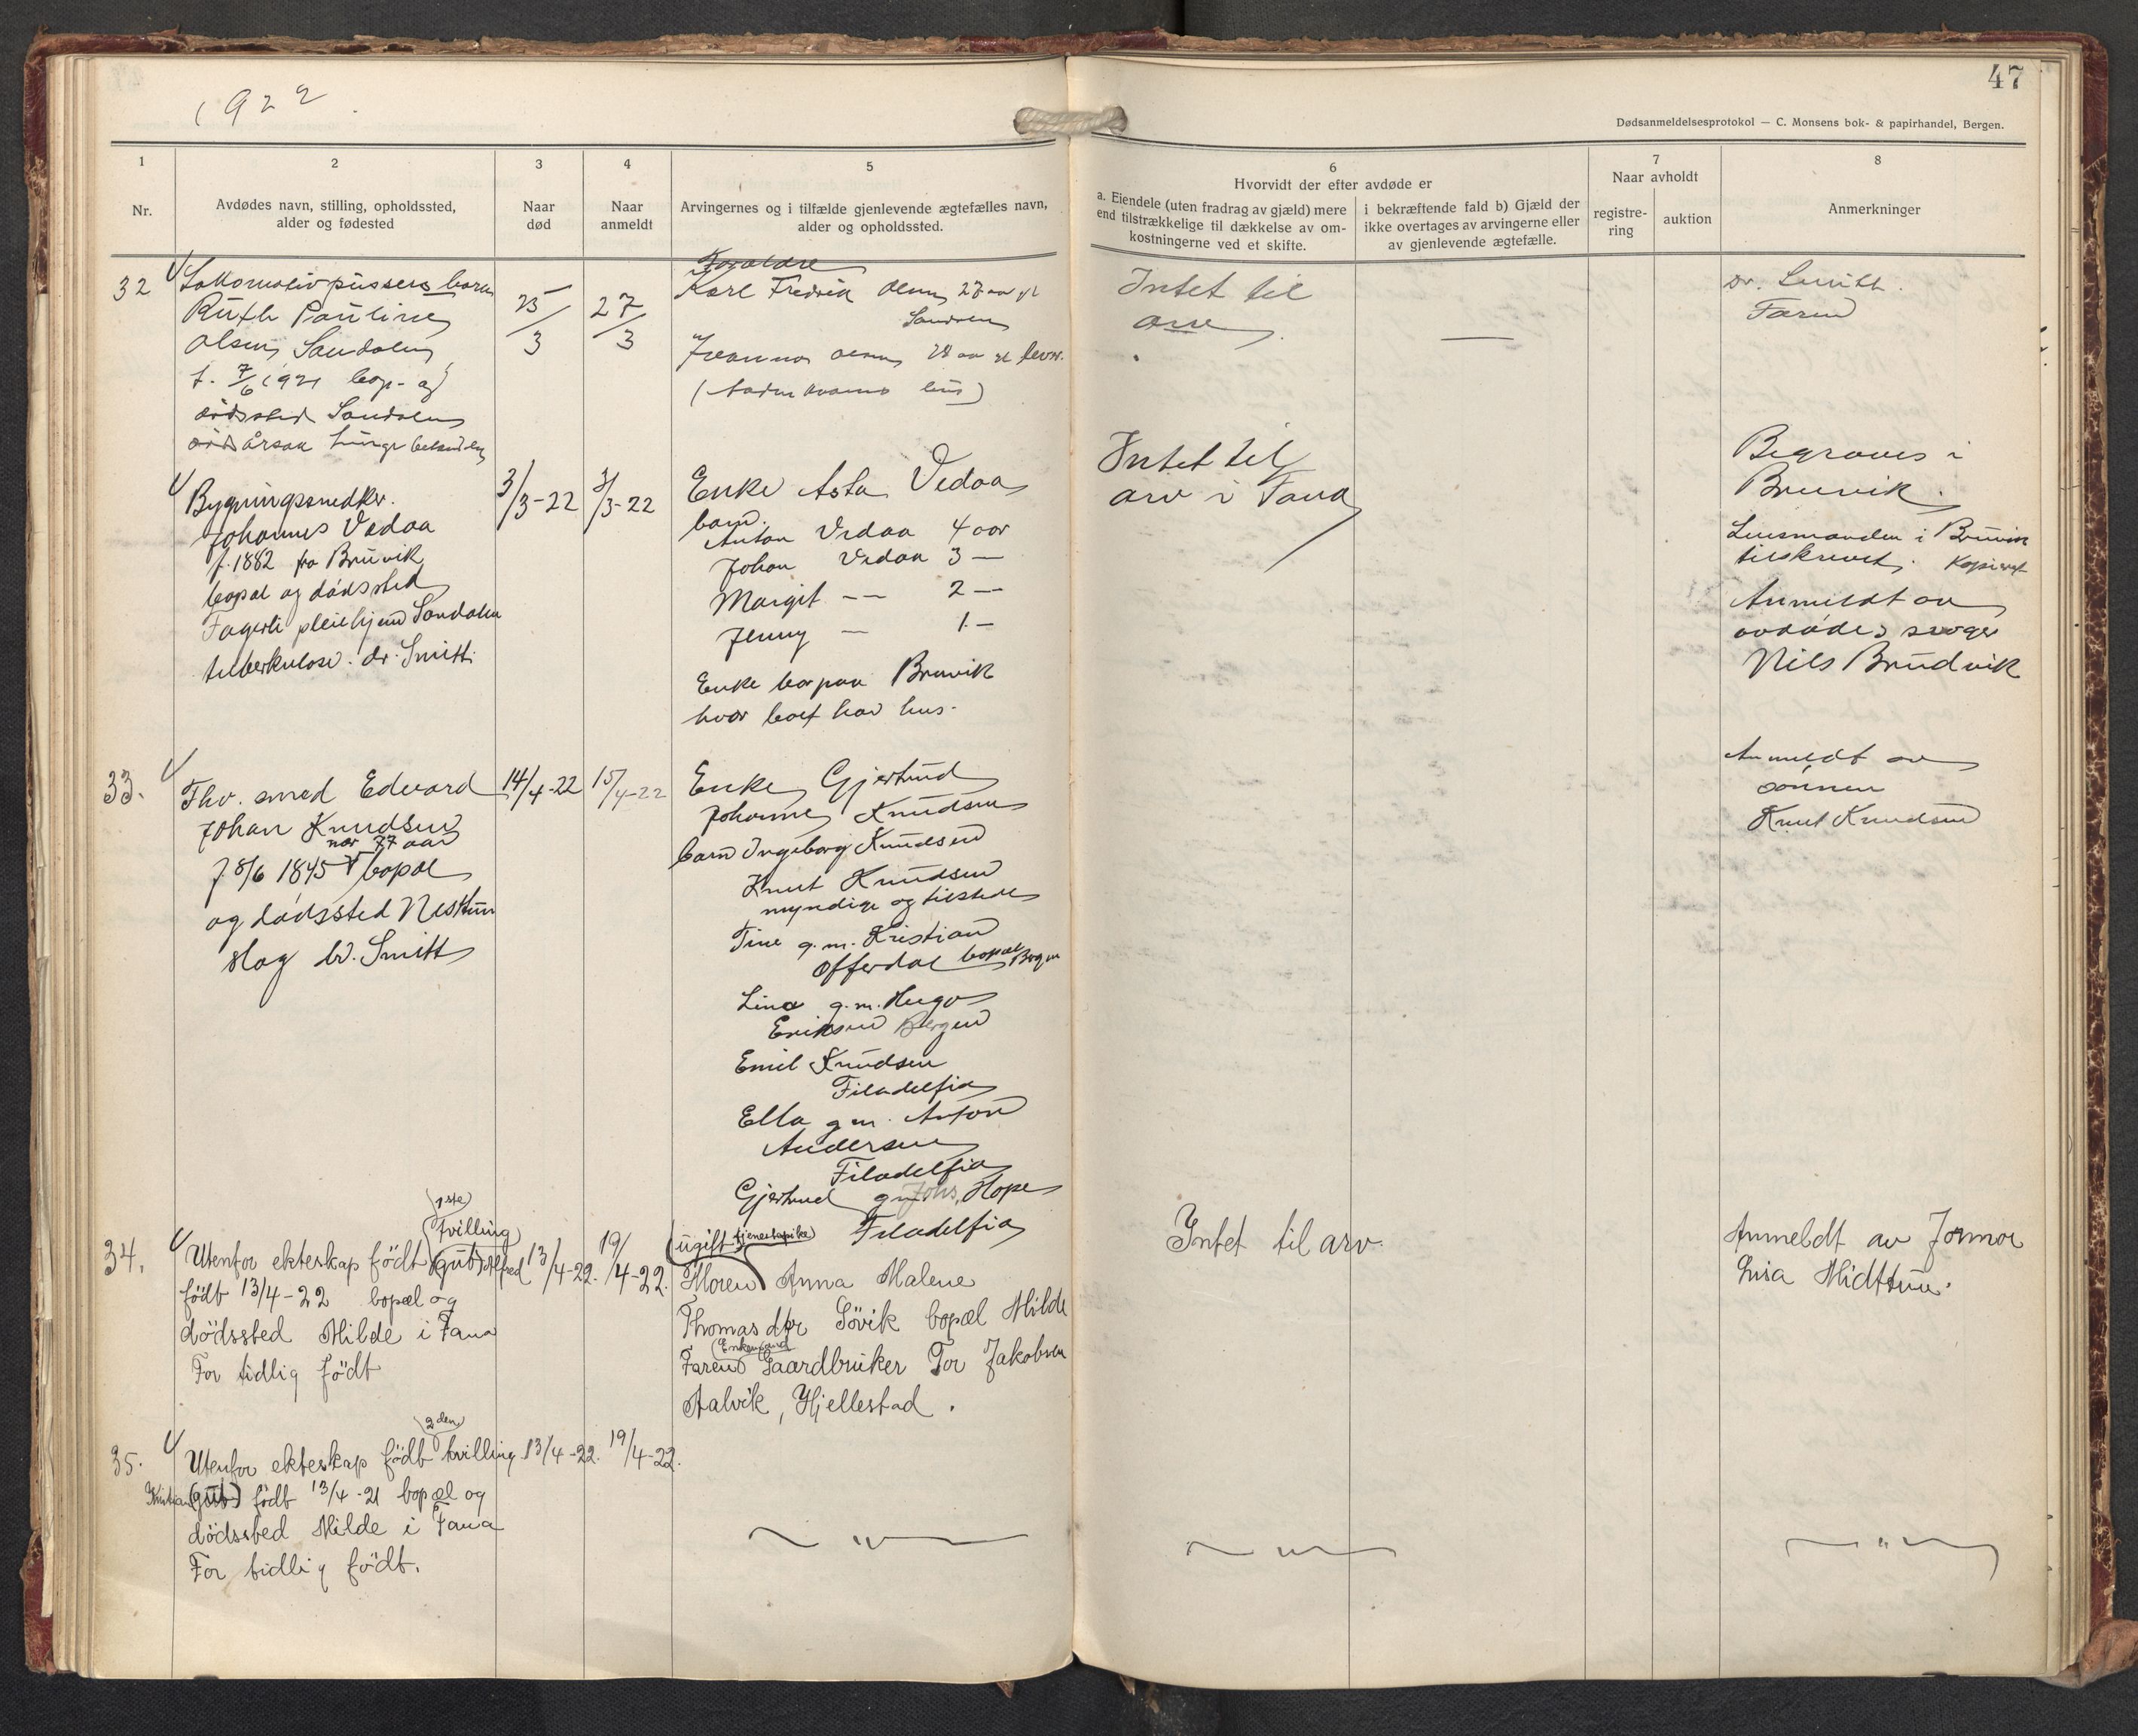 1922.
47
Dødsanmeldelsesprotokol — C. Monsens bok- & papirhandel, Bergen.
1
2
3
4
5
6
7
8
Nr.
Avdødes navn, stilling, opholdssted,
alder og fødested
Naar
død
Naar
anmeldt
Arvingernes og i tilfælde gjenlevende ægtefælles navn,
alder og opholdssted.
Hvorvidt der efter avdøde er
a. Eiendele (uten fradrag av gjæld) mere
end tilstrækkelige til dækkelse av om-
kostningerne ved et skifte.
i bekræftende fald b) Gjæld der
ikke overtages av arvingerne eller
av gjenlevende ægtefælle.
Naar avholdt
registre-
ring
auktion
Anmerkninger
32
Lokomotivpussers barn
Ruth Pauline
Olsen, Sandalen
f. 7/6 1921 bop. og
dødssted Sandalen
dødsårsak
25/3
27/3
Foreldre
Karl Fredrik Olsen 27 aar
Sandalen
Olsen 28 aar
Intet til
arv
—
Dr. Smitt.
Faren
Bygningssnedker.
Johannes Vedaa
f. 1882 fra Bruvik
bopæl og dødssted
Fagerli pleiehjem Sandalen
tuberkulose. dr. Smitt.
3/3-22
3/3-22
Enke Asta Vedaa
barn.
Anton Vedaa 4 aar
Johan Vedaa 3 —
Margit — — 2 —
Jenny — 1 —
Enke bor paa Bruvik
hvor boet har hus.
Intet til
arv i Fana
Begraves i
Bruvik.
Lensmanden i Bruvik
tilskrevet. Kopiert
Anmeldt av
avdødes svoger
Nils Brudvik
33.
Fhv. smed Edvard
Johan Knudsen
nær 77 aar
f 8/6 1845 bopæl
og dødssted Nestun
slag dr. Smitt
14/4-22
15/4-22
Enke Gjertrud
Johanne Knudsen
barn Ingeborg Knudsen
Knut Knudsen
myndige og tilstede
Tine g.m. Kristian
Offerdal bopæl Bergen
Lina g.m. Hugo
Eriksen Bergen
Emil Knudsen
Filadelfia
Ella g.m. Anton
Andersen
Filadelfia
Gjertrud g.m. Johs. Hope
Filadelfia
Anmeldt av
sønnen
Knut Knudsen
34.
1ste
tvilling
Utenfor ekteskap født (gut) Alfred
født 13/4-22 bopæl og
dödssted Milde i Fana
For tidlig född
13/4-22.
19/4-22.
(ugift tjenestepike)
Moren Anna Malene
Thomasdtr Sövik bopæl Milde
(Enkemand)
Faren Gaardbruker Tor Jakobsen
Aalvik, Hjellestad.
Intet til arv.
Anmeldt av Jormor
Lisa Midttun.
35.
2den
Utenfor ekteskap född tvilling
Kristian (gut) född 13/4-21 bopæl og
dödssted Milde i Fana
For tidlig född.
13/4-22.
19/4-22.
— " —
— " —
— " —